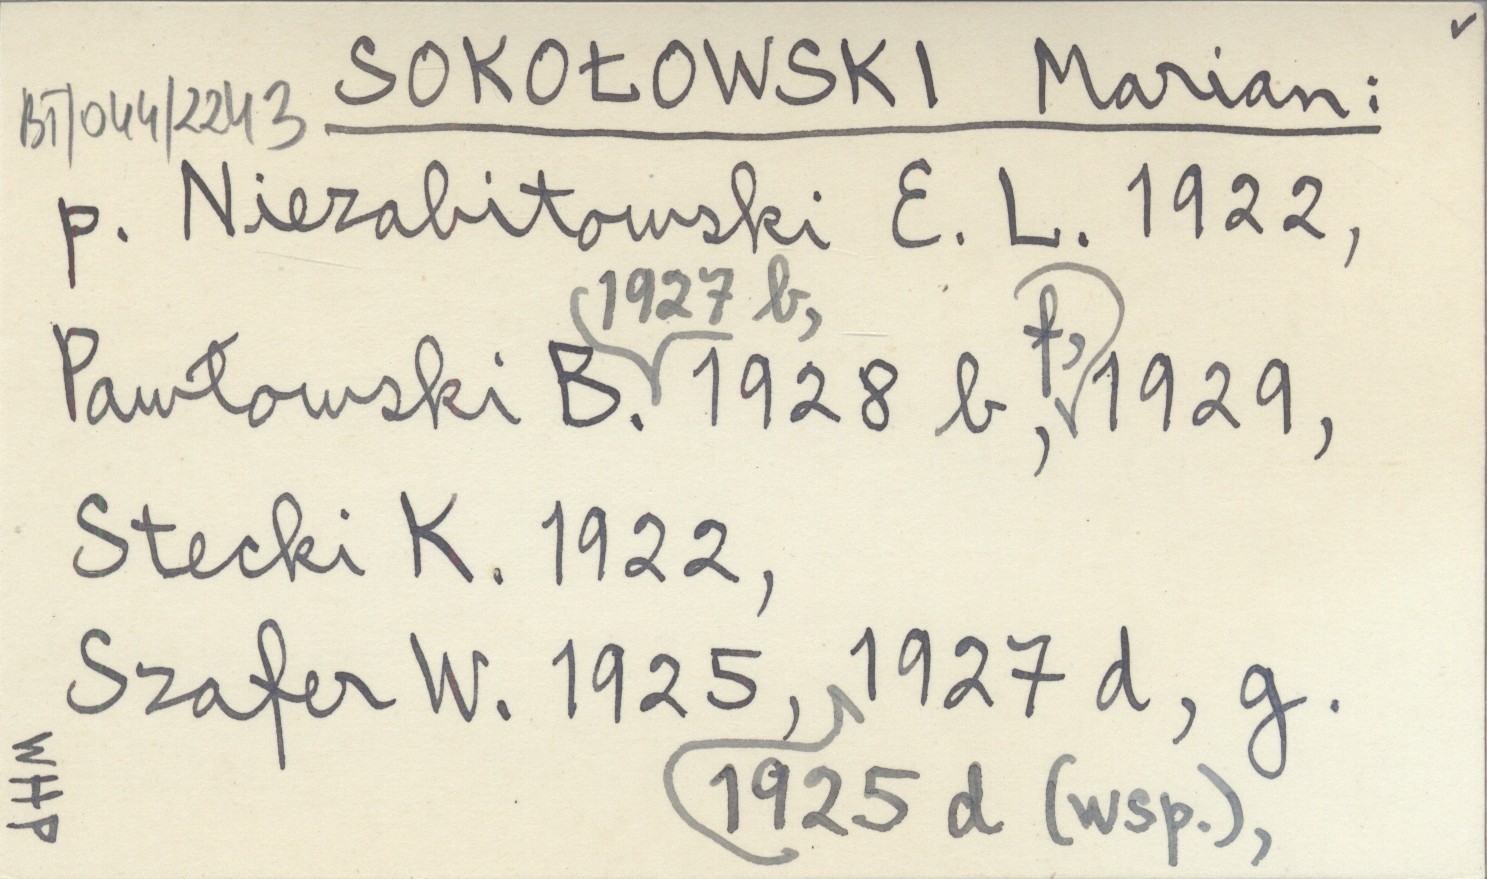 BT/044/2243 SOKOŁOWSKI Marian:
p. Niezabitowski E. L. 1922,
1927 b,
Pawłowski B. 1928 b, f, 1929,
Stecki K. 1922,
Szafer W. 1925, 1927 d, g.
1925 d (wsp.),
WHP